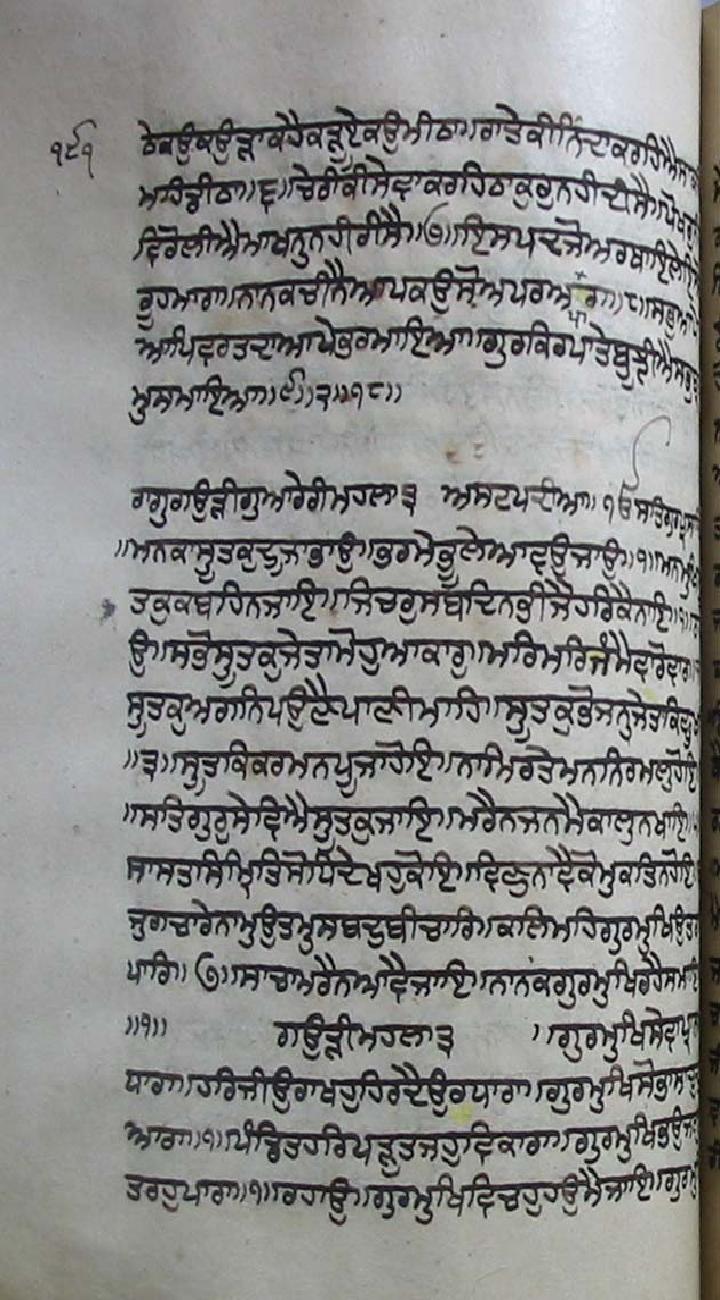 ੧੯੧
ਠੇਕਉਕਉੜਾਕਹੈਕੜੂਏਕਉਮੀਠਾ॥ਰਾਤੇਕੀਨਿੰਦਾਕਰਹਿਐਸਾਕ
ਮਹਿਡੀਠਾ॥੬॥ਚੇਰੀਕੀਸੇਵਾਕਰਹਿਠਾਕੁਰੁਨਹੀਦੀਸੈ॥ਪੋਖਰੁ
ਵਿਰੋਲੀਐਮਾਖਨੁਨਹੀਰੀਸੈ॥੭॥ਇਸੁਪਦਜੋਅਰਥਾਇਲੇਇ
ਗੁਰੂਹਮਾਰਾ॥ਨਾਨਕਚੀਨੈਆਪਕਉਸੋਅਪਰਅਪਾਰਾ॥੮॥ਸਭੁਆਪੇ
ਆਪਿਵਰਤਦਾਆਪੇਭਰਮਾਇਆ॥ਗੁਰਕਿਰਪਾਤੇਬੂਝੀਐਸਭੁਬ੍ਰ
ਮੁਸਮਾਇਆ॥੯॥੨॥੧੮॥
ਰਾਗੁਗਉੜੀਗੁਆਰੇਰੀਮਹਲਾ੩ ਅਸਟਪਦੀਆ॥ ੴਸਤਿਗੁਰਪ੍ਰਸਾ
॥ਮਨਕਾਸੂਤਕੁਦੂਜਾਭਾਉ॥ਭਰਮੇਭੂਲੇਆਵਉਜਾਉ॥੧॥ਮਨਮੁਖਿ
ਤਕੁਕਬਹਿਨਜਾਇ॥ਜਿਚਰੁਸਬਦਿਨਭੀਜੈਹਰਿਕੈਨਾਇ॥੧॥ਰ
ਉ॥ਸਭੋਸੂਤਕੁਜੇਤਾਮੋਹੁਆਕਾਰੁ॥ਮਰਿਮਰਿਜੰਮੈਵਾਰੋਵਾਰ
ਸੂਤਕੁਅਗਨਿਪਉਣੈਪਾਣੀਮਾਹਿ॥ਸੂਤਕੁਭੋਜਨੁਜੇਤਾਕਿਛੁਖ
॥੩॥ਸੂਤਕਿਕਰਮਨਪੂਜਾਹੋਇ॥ਨਾਮਿਰਤੇਮਨੁਨਿਰਮਲੁਹੋਇ
॥ਸਤਿਗੁਰੁਸੇਵਿਐਸੂਤਕੁਜਾਇ॥ਮਰੈਨਜਨਮੈਕਾਲੁਨਖਾਇ॥
ਸਾਸਤਸਿੰਮ੍ਰਿਤਿਸੋਧਿਦੇਖਹੁਕੋਇ॥ਵਿਣੁਨਾਵੈਕੋਮੁਕਤਿਨਹੋਇ
ਜੁਗਚਾਰੇਨਾਮੁਉਤਮੁਸਬਦੁਬੀਚਾਰਿ॥ਕਲਿਮਹਿਗੁਰਮੁਖਿਉਤਰ
ਪਾਰਿ॥੭॥ਸਾਚਾਮਰੈਨਆਵੈਜਾਇ॥ਨਾਨਕਗੁਰਮੁਖਿਰਹੈਸਮਾਇ
॥੧॥ ਗਉੜੀਮਹਲਾ੩ ॥ਗੁਰਮੁਖਿਸੇਵਾਪ੍ਰਾਨ
ਧਾਰਾ॥ਹਰਿਜੀਉਰਾਖਹੁਹਿਰਦੈਉਰਧਾਰਾ॥ਗੁਰਮੁਖਿਸੋਭਾਸਾਚ
ਆਰਾ॥੧॥ਪੰਡਿਤਹਰਿਪੜੁਤਜਹੁਵਿਕਾਰਾ॥ਗੁਰਮੁਖਿਭਉਜ
ਤਰਹੁਪਾਰਾ॥੧॥ਰਹਾਉ॥ਗੁਰਮੁਖਿਵਿਚਹੁਹਉਮੈਜਾਇ॥ਗੁਰਮੁ